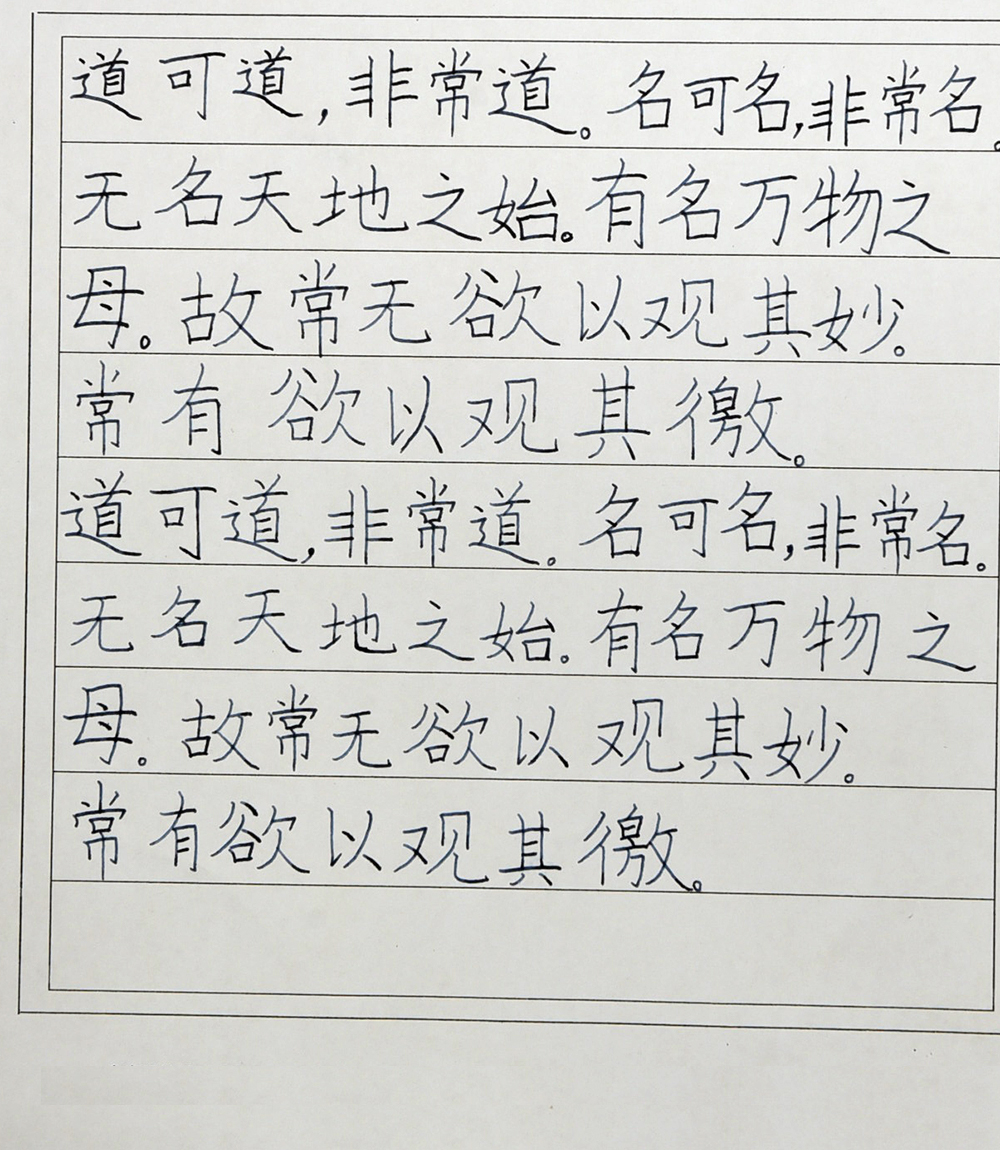 道可道,非常道。名可名,非常名。
无名天地之始。有名万物之
母。故常无欲以观其妙。
常有欲以观其徼。
道可道,非常道。名可名,非常名。
无名天地之始。有名万物之
母。故常无欲以观其妙。
常有欲以观其徼。